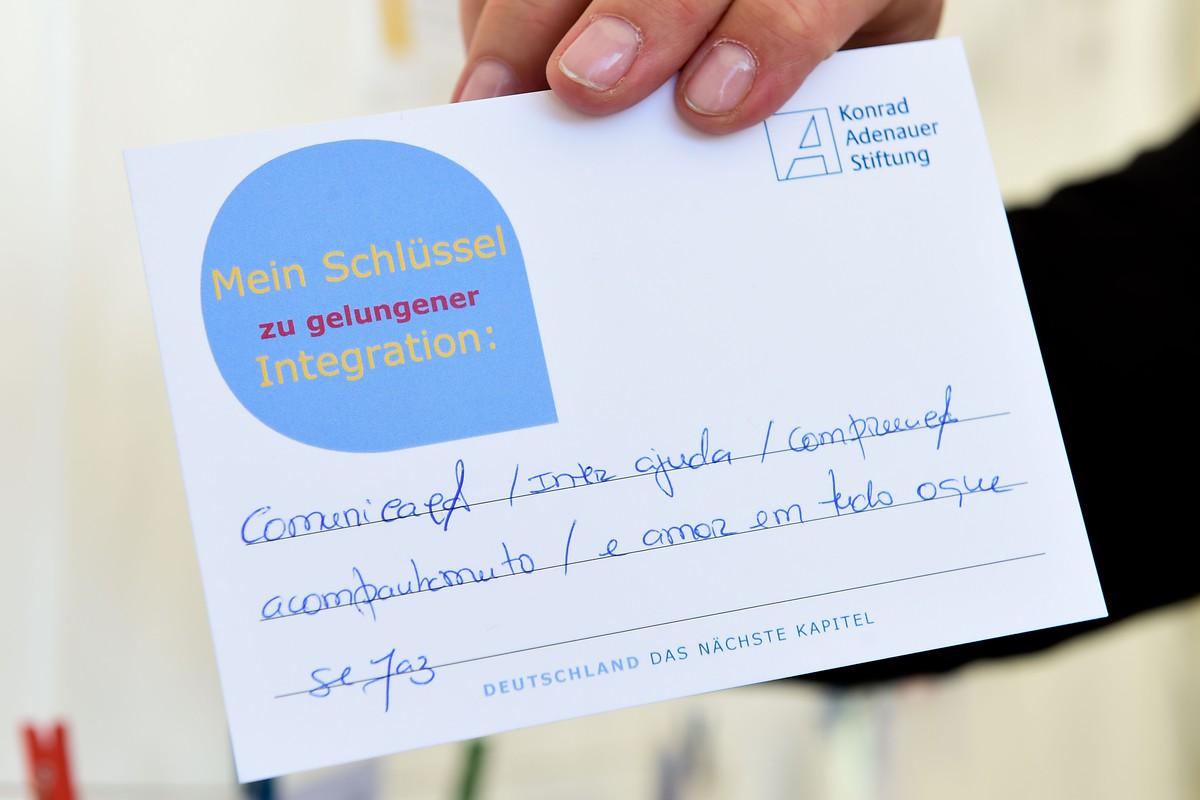 Konrad
Adenauer
Stiftung
Mein Schlüssel
zu gelungener
Integration:
/ Inter ajuda /
/ e amor em tudo oque
se faz
DEUTSCHLAND DAS NÄCHSTE KAPITEL